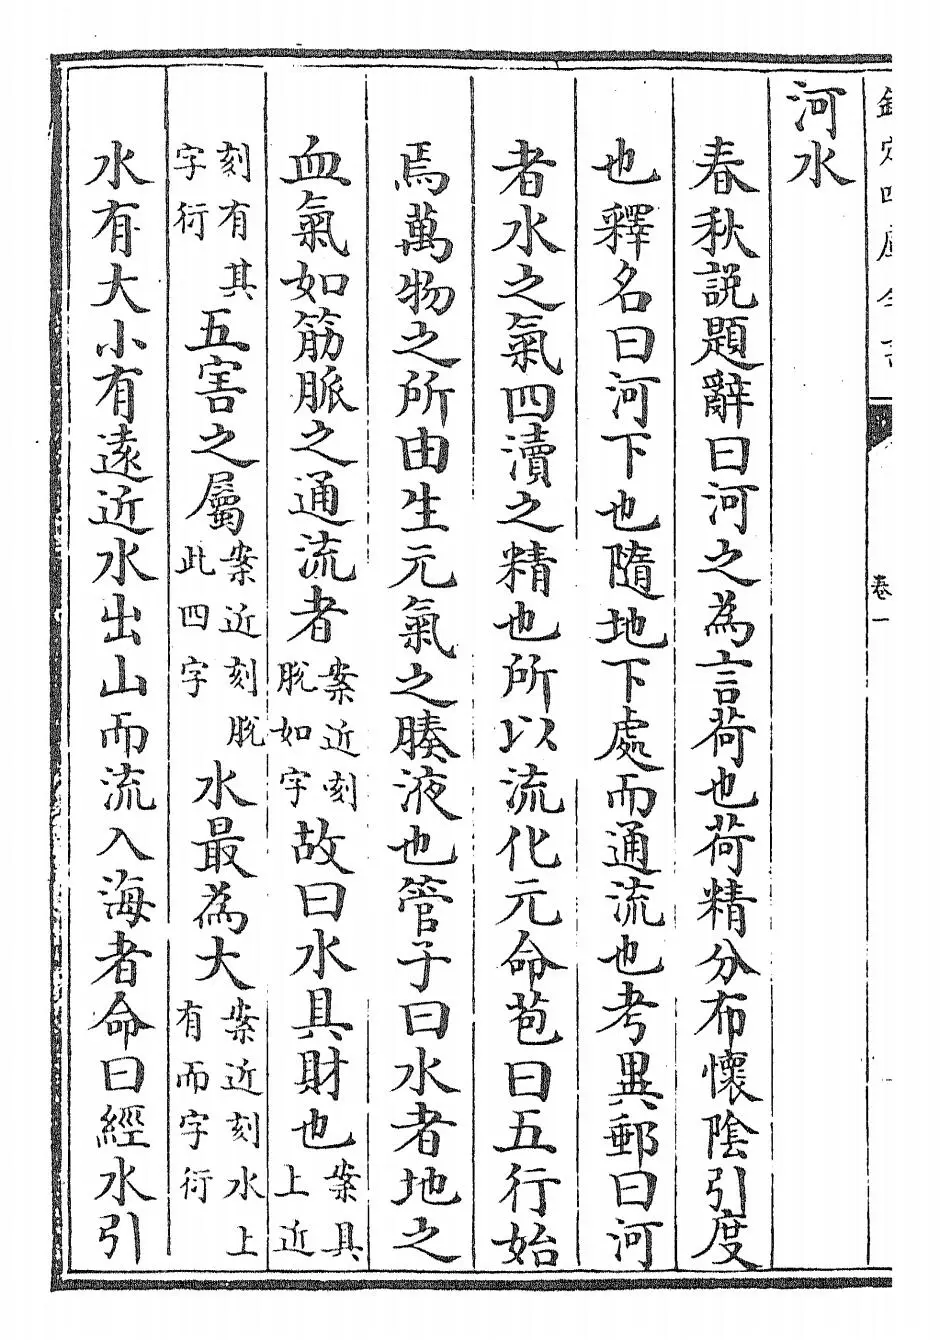 欽定四庫全書
卷一
河水
春秋説題辭曰河之為言荷也荷精分布懷陰引度
也釋名曰河下也隨地下處而通流也考異郵曰河
者水之氣四瀆之精也所以流化元命苞曰五行始
焉萬物之所由生元氣之腠液也管子曰水者地之
血氣如筋脈之通流者案近刻脫如字故曰水具財也案具上近
刻有其字衍五害之屬案近刻脫此四字水最為大案近刻水上有而字衍
水有大小有遠近水出山而流入海者命曰經水引